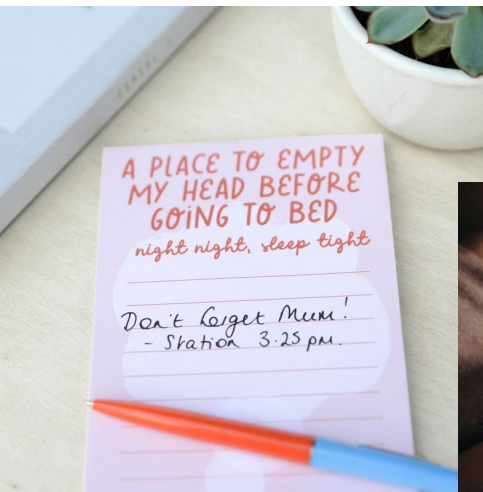 CEREAL
A PLACE TO EMPTY
MY HEAD BEFORE
GOING TO BED
night night, sleep tight
Don't forget Mum!
- Station 3.25 pm.